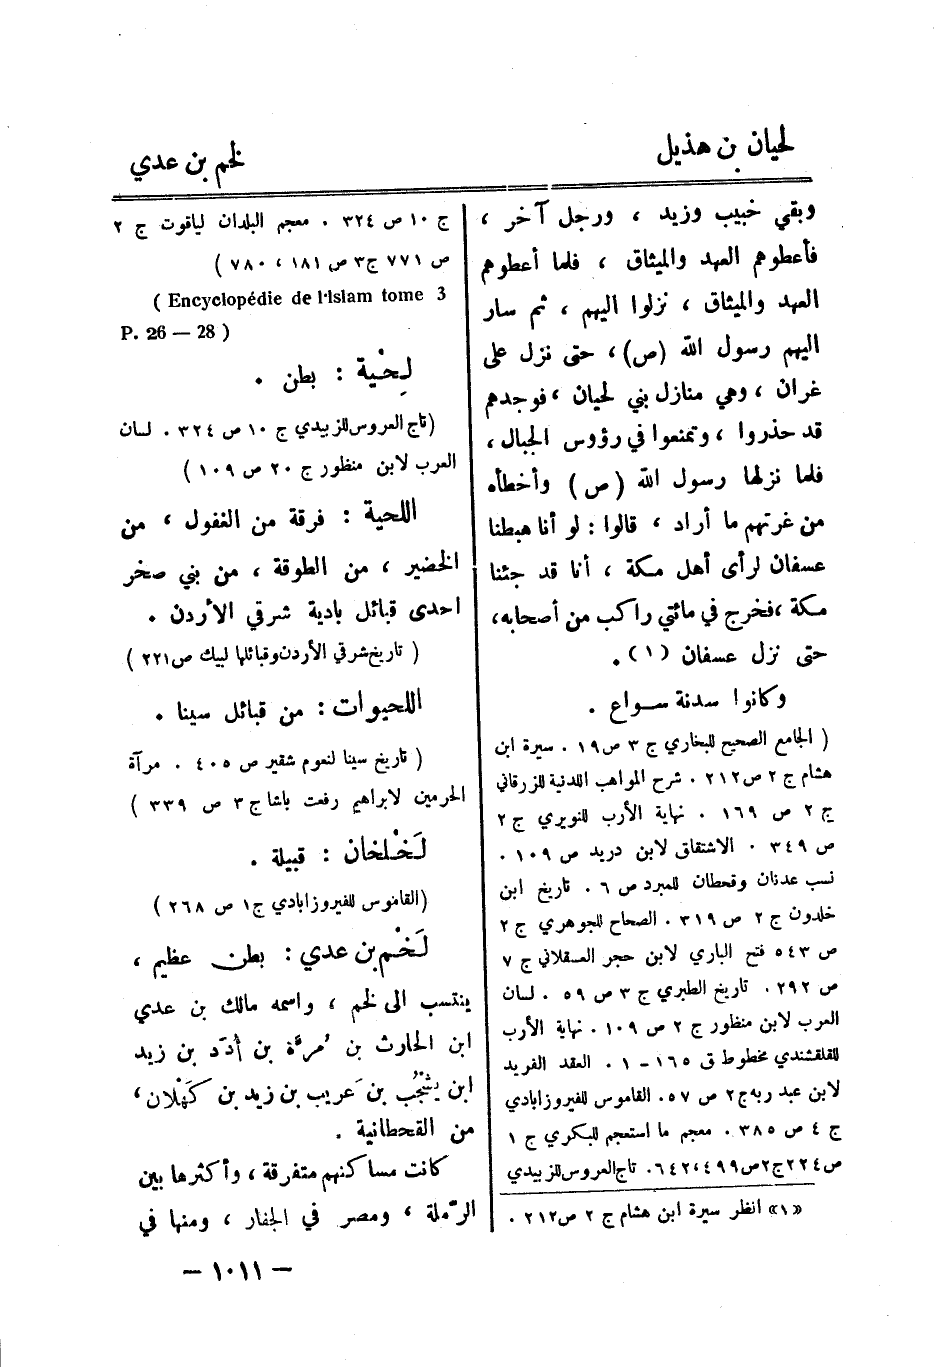 لحيان بن هذيل
لخم بن عدي
وبقي خبيب وزيد ، ورجل آخر ،
فأعطوهم العهد والميثاق ، فلما أعطوهم
العهد والميثاق ، نزلوا اليهم ، ثم سار
اليهم رسول الله (ص) ، حتى نزل على
غران ، وهي منازل بني لحيان ، فوجدهم
قد حذروا ، وتمنعوا في رؤوس الجبال ،
فلما نزلها رسول الله (ص) وأخطأه
من غرتهم ما أراد ، قالوا : لو أنا هبطنا
عسفان لرأى أهل مكة ، أنا قد جئنا
مكة ، فخرج في مائتي راكب من أصحابه ،
حتى نزل عسفان (١) .
وكانوا سدنة سواع .
( الجامع الصحيح للبخاري ج ٣ ص ١٩ . سيرة ابن
هشام ج ٢ ص ٢١٢ . شرح المواهب اللدنية للزرقاني
ج ٢ ص ١٦٩ . نهاية الأرب للنويري ج ٢
ص ٣٤٩ . الاشتقاق لابن دريد ص ١٠٩ .
نسب عدنان وقحطان للمبرد ص ٦ . تاريخ ابن
خلدون ج ٢ ص ٣١٩ . الصحاح للجوهري ج ٢
ص ٥٤٣ فتح الباري لابن حجر العسقلاني ج ٧
ص ٢٩٢ . تاريخ الطبري ج ٣ ص ٥٩ . لسان
العرب لابن منظور ج ٢ ص ١٠٩ . نهاية الأرب
للقلقشندي مخطوط ق ١٦٥ - ١ . العقد الفريد
لابن عبد ربه ج ٢ ص ٥٧ . القاموس للفيروزابادي
ج ٤ ص ٣٨٥ . معجم ما استعجم للبكري ج ١
ص ٢٢٤ ج ٢ ص ٤٩٩ ، ٦٤٢ . تاج العروس للزبيدي
«١» انظر سيرة ابن هشام ج ٢ ص ٢١٢ .
ج ١٠ ص ٣٢٤ . معجم البلدان لياقوت ج ٢
ص ٧٧١ ج ٣ ص ١٨١ ، ٧٨٠ )
( Encyclopédie de l'Islam tome 3
P. 26 — 28 )
لِحْية : بطن .
(تاج العروس للزبيدي ج ١٠ ص ٣٢٤ . لسان
العرب لابن منظور ج ٢٠ ص ١٠٩ )
اللحية : فرقة من الغفول ، من
الخضير ، من الطوقة ، من بني صخر
احدى قبائل بادية شرقي الأردن .
( تاريخ شرقي الأردن وقبائلها لبيك ص ٢٢١ )
اللحيوات : من قبائل سينا .
( تاريخ سينا لنعوم شقير ص ٤٠٥ . مرآة
الحرمين لابراهيم رفعت باشا ج ٣ ص ٣٣٩ )
لَخْلخان : قبيلة .
(القاموس للفيروزابادي ج ١ ص ٢٦٨ )
لَخْم بن عدي : بطن عظيم ،
ينتسب الى لخم ، واسمه مالك بن عدي
ابن الحارث بن مُرّة بن أُدَد بن زيد
ابن يشْجُب بن عَريب بن زيد بن كَهْلان ،
من القحطانية .
كانت مساكنهم متفرقة ، وأكثرها بين
الرّملة ، ومصر في الجفار ، ومنها في
— ١٠١١ —